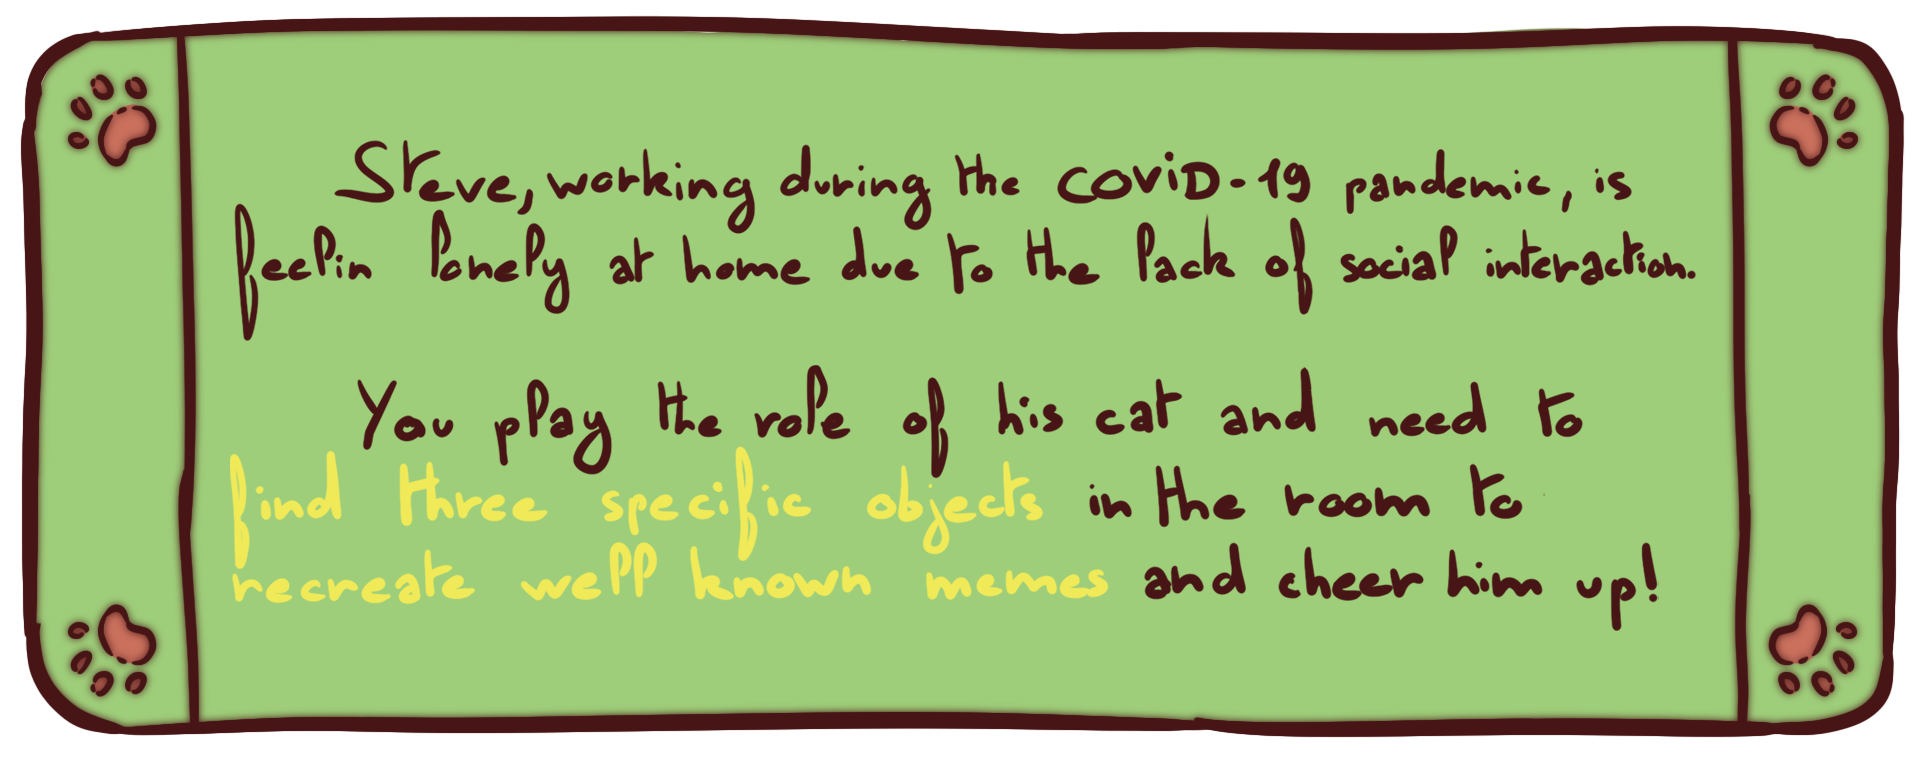 Steve, working during the COVID-19 pandemic, is
feelin lonely at home due to the lack of social interaction.
You play the role of his cat and need to
find three specific objects in the room to
recreate well known memes and cheer him up!